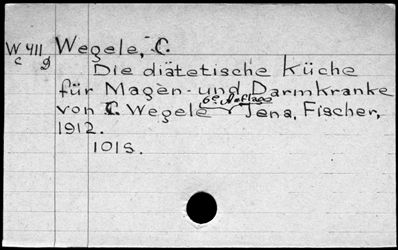 W 411 Wegele, C.
c g
Die diätetische Küche
für Magen- und Darmkranke
6e Auflage
von C. Wegele Jena, Fischer,
1912.
101s.